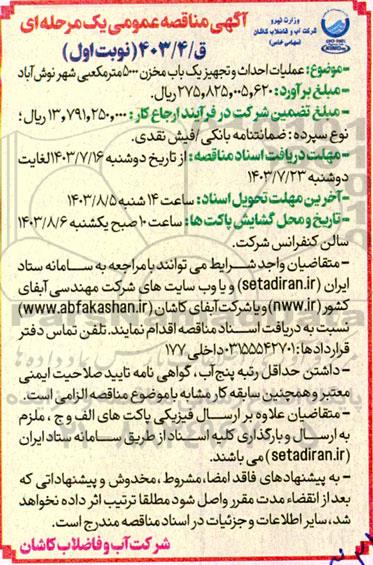 وزارت نیرو
شرکت آب و فاضلاب کاشان
(سهامی خاص)
آگهی مناقصه عمومی یک مرحله ای
ق/۴۰۳/۴ (نوبت اول)
-موضوع: عملیات احداث و تجهیز یک باب مخزن ۵۰۰۰ مترمکعبی شهر نوش آباد
-مبلغ برآورد: ۲۷۵,۸۲۵,۰۰۵,۶۲۰ ریال.
-مبلغ تضمین شرکت در فرآیند ارجاع کار: ۱۳,۷۹۱,۲۵۰,۰۰۰ ریال؛
نوع سپرده: ضمانتنامه بانکی /فیش نقدی.
-مهلت دریافت اسناد مناقصه: از تاریخ دوشنبه ۱۴۰۳/۷/۱۶ لغایت
دوشنبه ۱۴۰۳/۷/۲۳
-آخرین مهلت تحویل اسناد: ساعت ۱۴ شنبه ۱۴۰۳/۸/۵
-تاریخ و محل گشایش پاکت ها: ساعت ۱۰ صبح یکشنبه ۱۴۰۳/۸/۶
سالن کنفرانس شرکت.
-متقاضیان واجد شرایط می توانند با مراجعه به سامانه ستاد
ایران (setadiran.ir) و یا وب سایت های شرکت مهندسی آبفای
کشور (nww.ir) و یا شرکت آبفای کاشان (www.abfakashan.ir)
نسبت به دریافت اسناد مناقصه اقدام نمایند. تلفن تماس دفتر
قراردادها: ۰۳۱۵۵۵۴۲۷۰۱ داخلی ۱۷۷
-داشتن حداقل رتبه پنج آب، گواهی نامه تایید صلاحیت ایمنی
معتبر و همچنین سابقه کار مشابه با موضوع مناقصه الزامی است.
-متقاضیان علاوه بر ارسال فیزیکی پاکت های الف و ج، ملزم
به ارسال و بارگذاری کلیه اسناد از طریق سامانه ستاد ایران
(setadiran.ir) می باشند.
-به پیشنهادهای فاقد امضا، مشروط، مخدوش و پیشنهاداتی که
بعد از انقضاء مدت مقرر واصل شود مطلقا ترتیب اثر داده نخواهد
شد، سایر اطلاعات و جزئیات در اسناد مناقصه مندرج است.
شرکت آب و فاضلاب کاشان